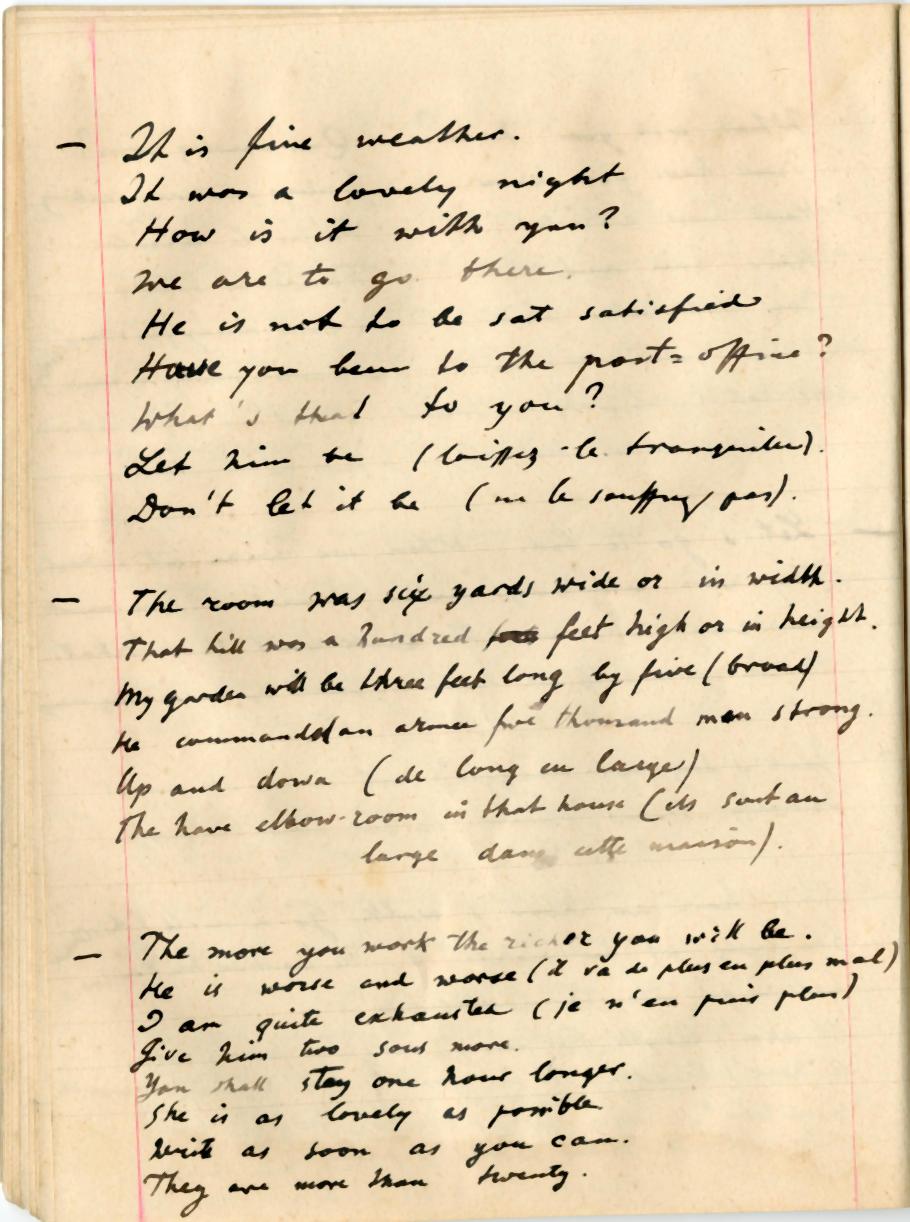 — It is fine weather.
It was a lovely night
How is it with you?
We are to go there.
He is not to be sat satisfied
Have you been to the post=office?
What's that to you?
Let him be (laissez-le tranquille).
Don't let it be (ne le souffrez pas).
— The room was six yards wide or in width.
That hill was a hundred feet high or in height.
My garden will be three feet long by five (broad)
He commanded an armee five thousand men strong.
Up and down (de long en large)
The have elbow-room in that house (ils sont au
large dans cette maison).
— The more you work the richer you will be.
He is worse and worse (il va de plus en plus mal)
I am quite exhausted (je n'en puis plus)
Give him two sous more.
You shall stay one hour longer.
She is as lovely as possible.
Write as soon as you can.
They are more than twenty.